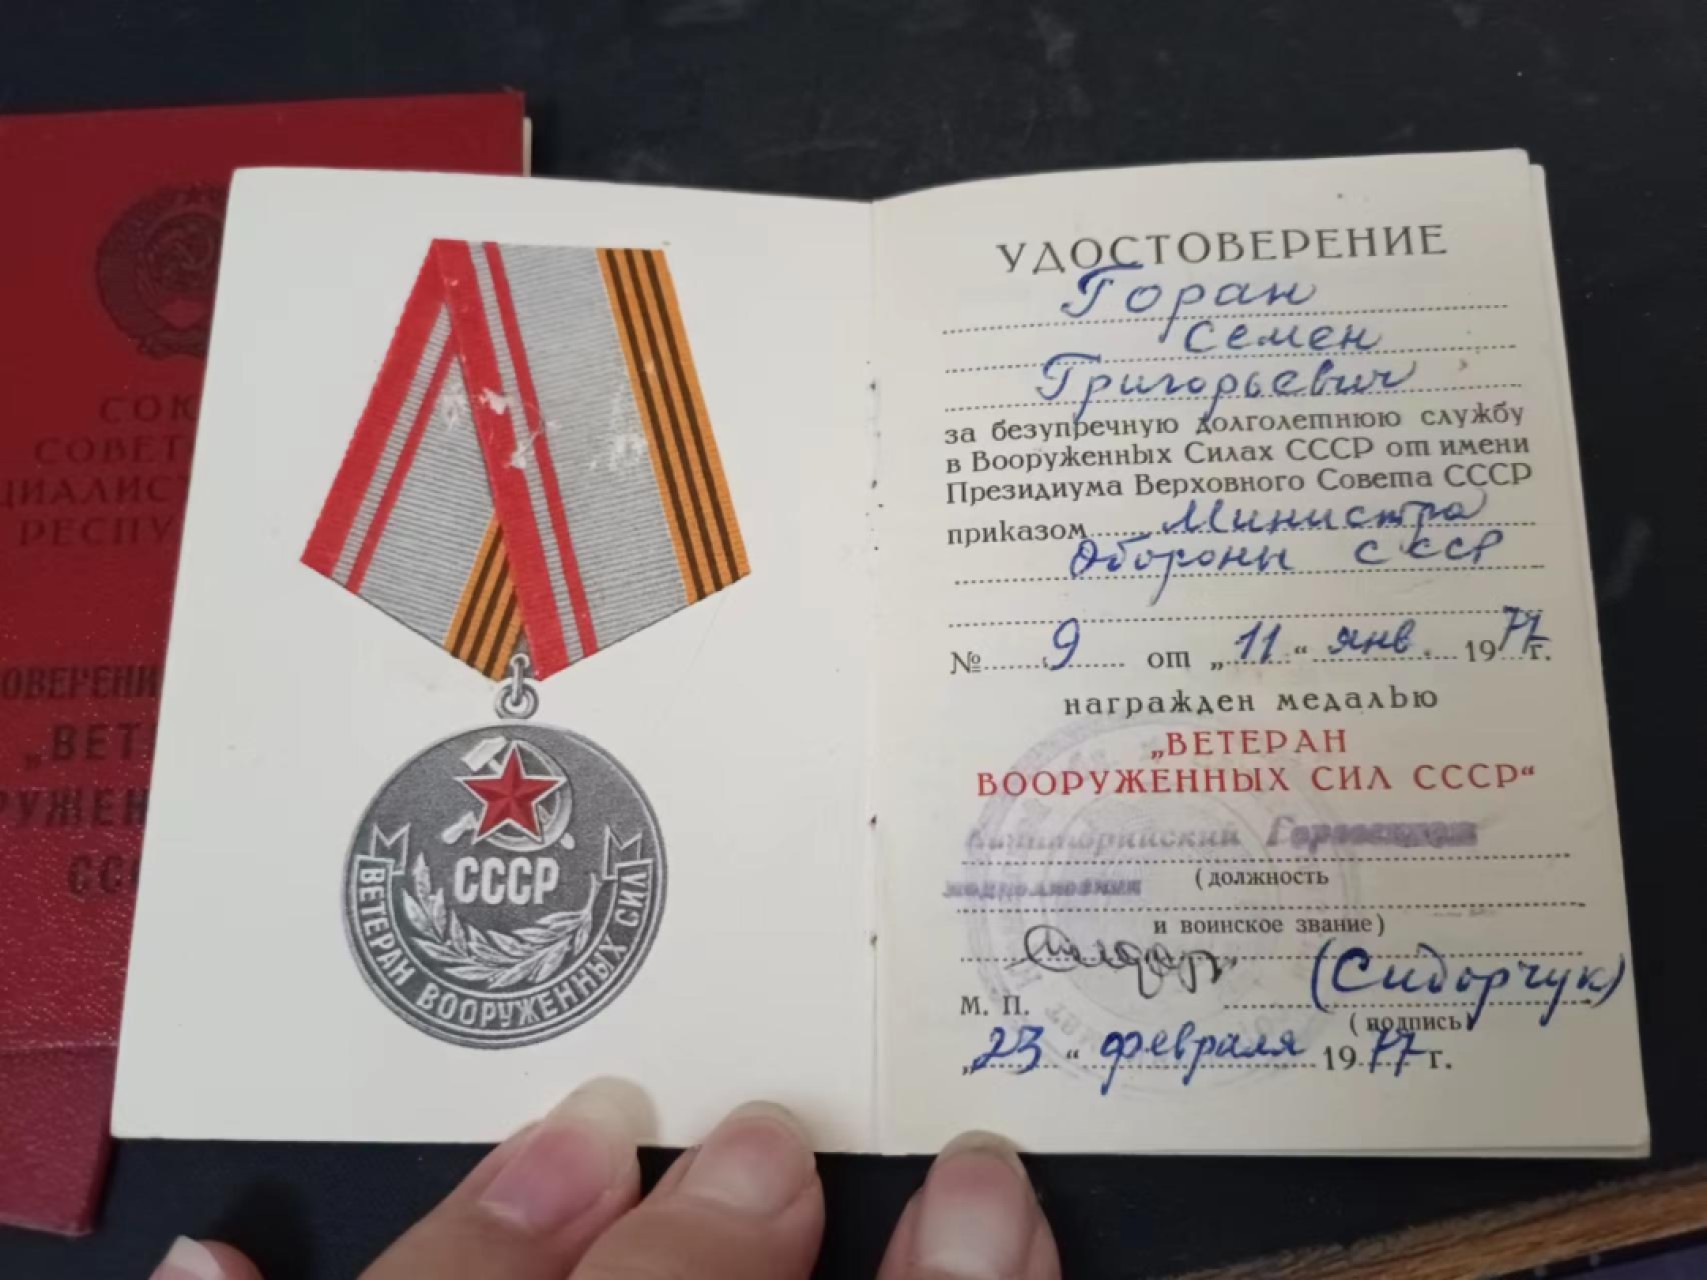 СОЮ
СОВЕТ
ЦИАЛИС
РЕСПУ
ОВЕРЕНИ
„ВЕТ
РУЖЕН
ССС
СССР
ВЕТЕРАН ВООРУЖЕННЫХ СИЛ
УДОСТОВЕРЕНИЕ
Горан
Семен
Григорьевич
за безупречную долголетнюю службу
в Вооруженных Силах СССР от имени
Президиума Верховного Совета СССР
приказом Министра
Обороны СССР
№ 9 от „11“ янв. 1977 г.
награжден медалью
„ВЕТЕРАН
ВООРУЖЕННЫХ СИЛ СССР“
(должность
и воинское звание)
(Сидорчук)
М. П.
(подпись)
„23“ февраля 1977 г.